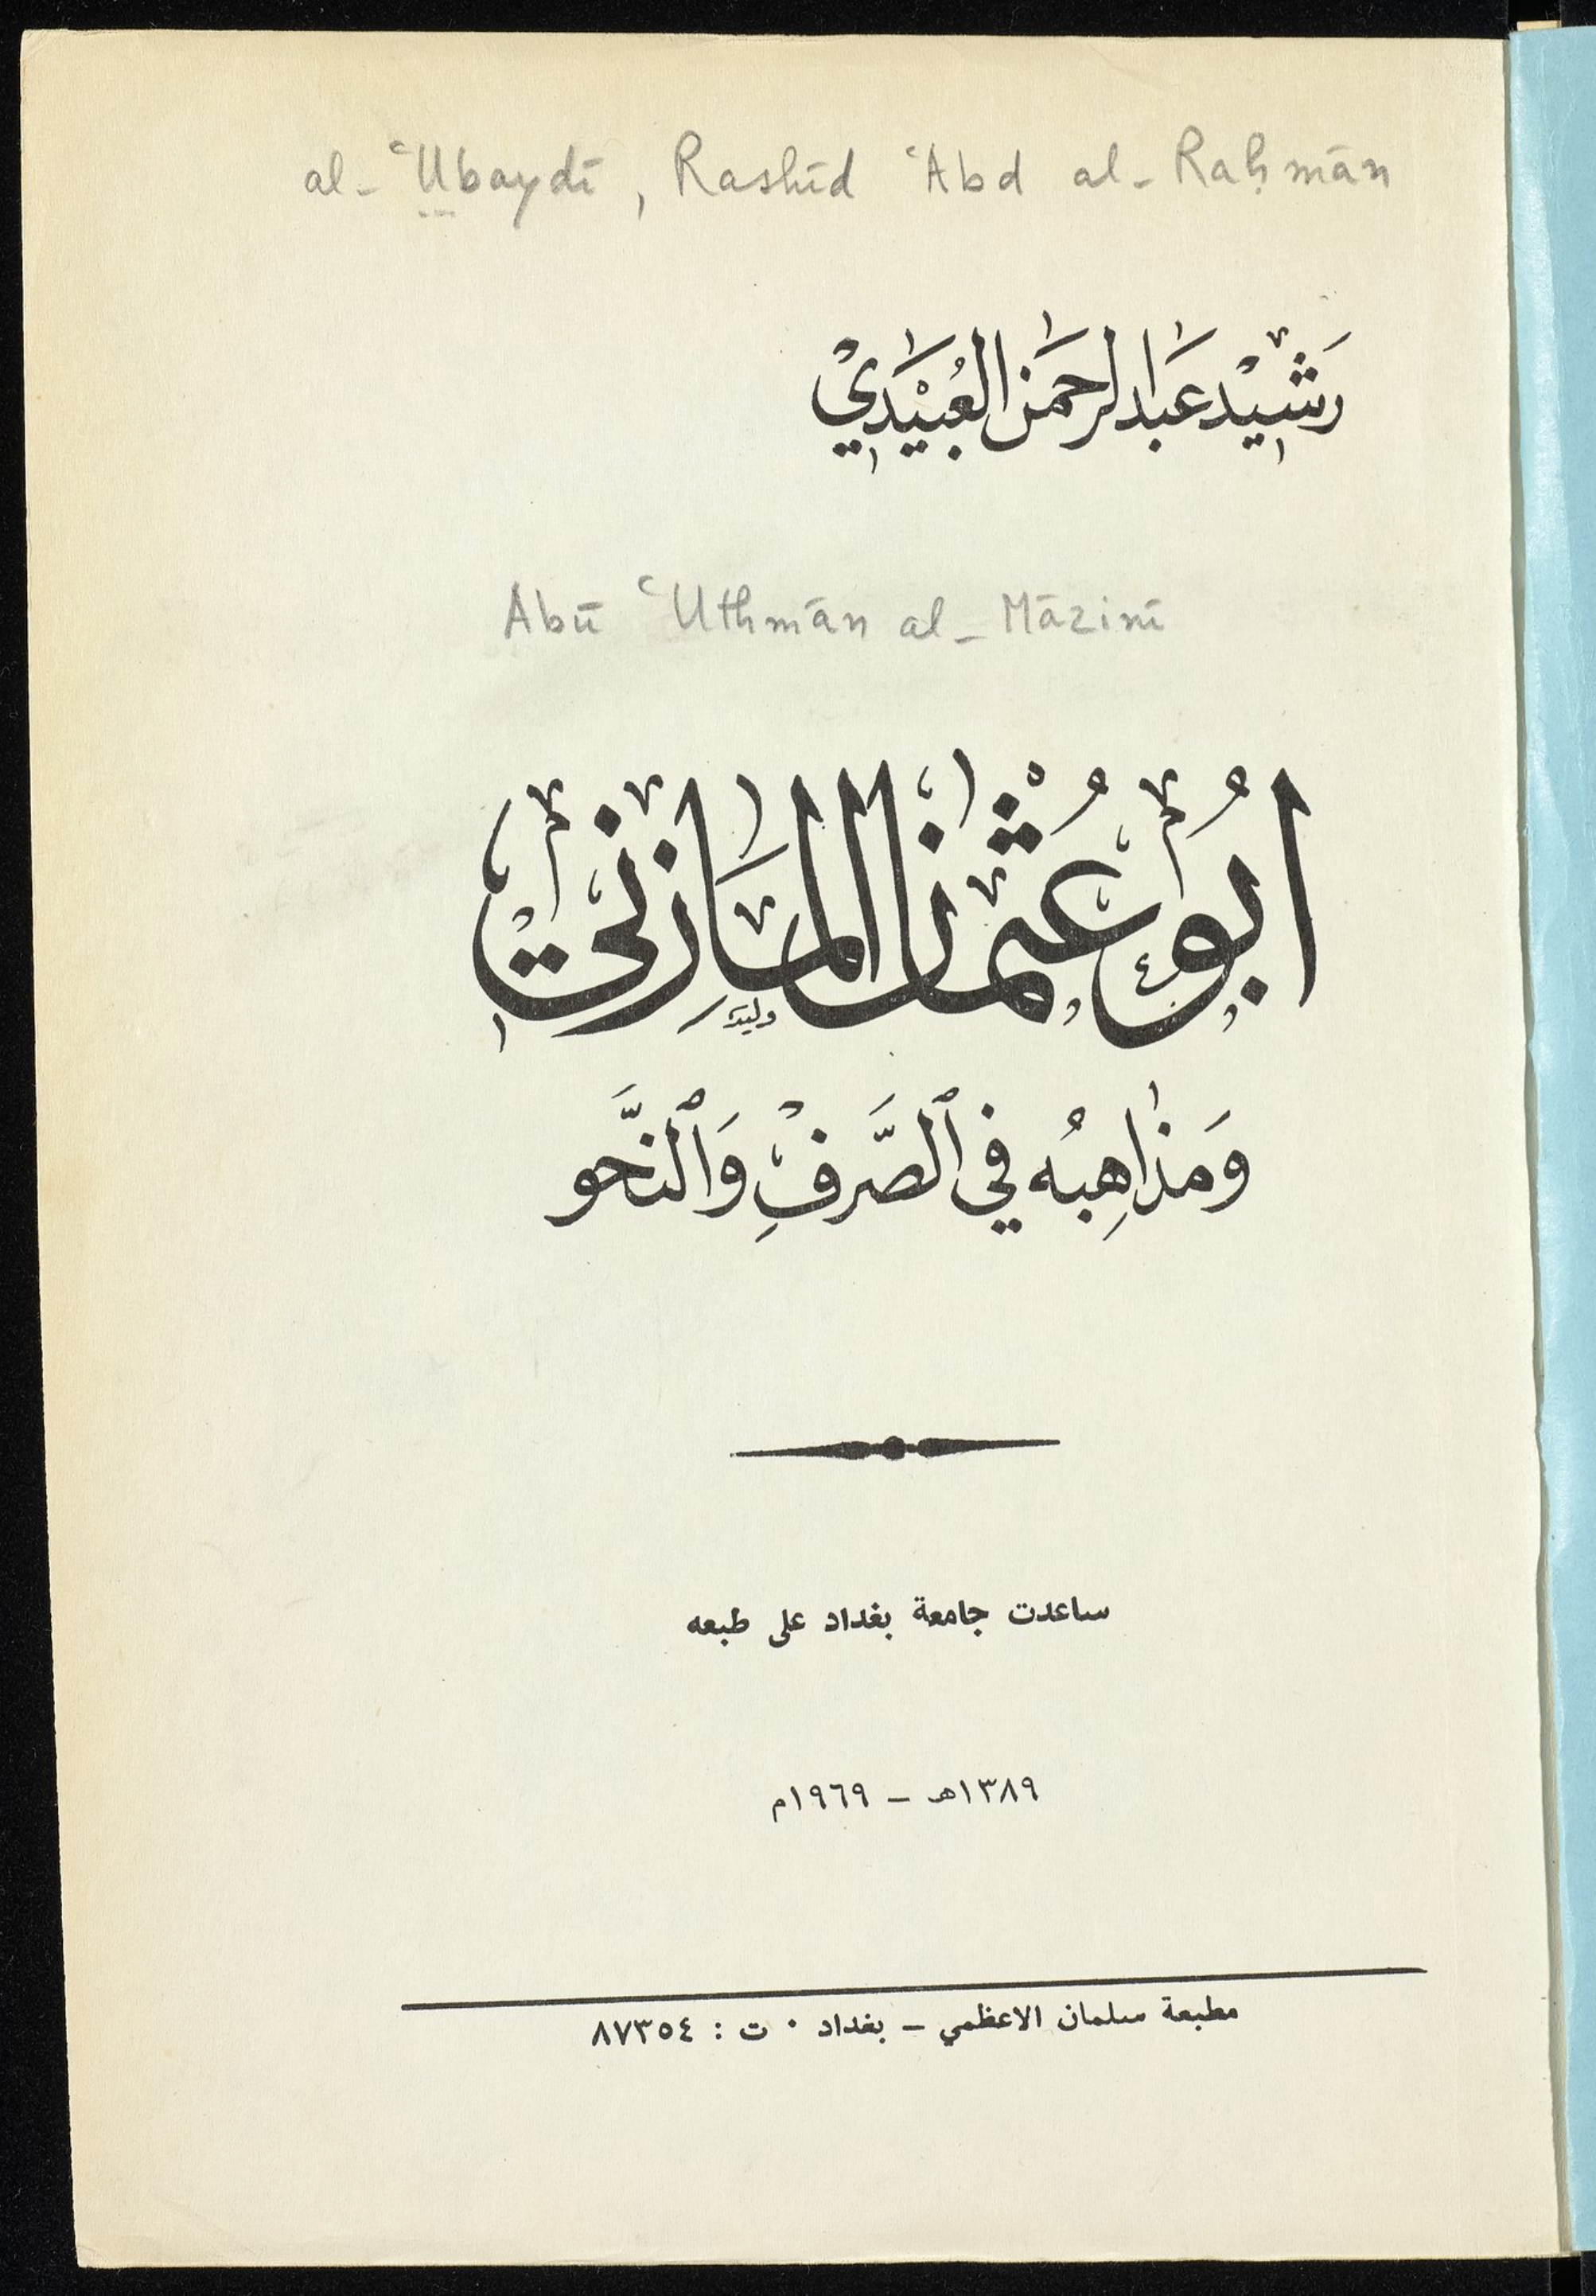 al-ʿUbaydī, Rashīd ʿAbd al-Raḥmān
رَشِيْد عَبد الرحمَن العُبَيْدَيْ
Abū ʿUthmān al-Māzinī
ابُو عُثمَان المَازِنيّ
وليد
وَمَذاهِبُه في ٱلصَّرفِ وَٱلنَّحو
ساعدت جامعة بغداد على طبعه
١٣٨٩هـ – ١٩٦٩م
مطبعة سلمان الاعظمي – بغداد ٠ ت : ٨٧٣٥٤